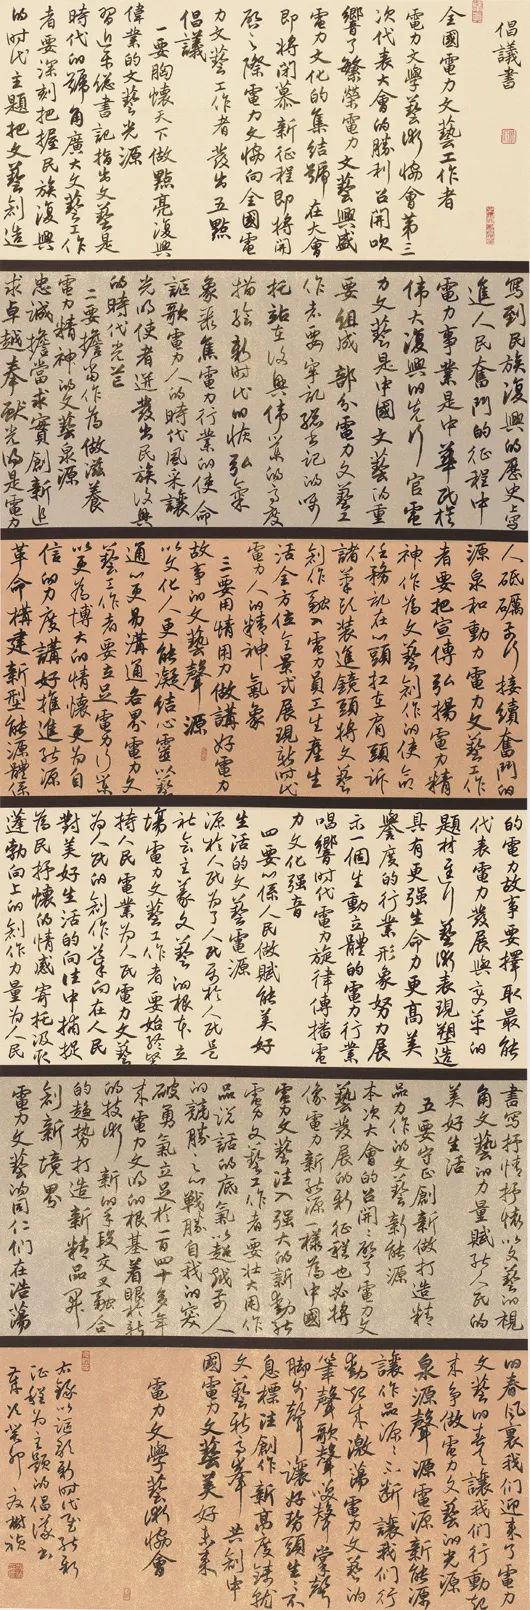 倡議書
全國電力文藝工作者
電力文學藝術協會第三
次代表大會的勝利召開吹
響了繁榮電力文藝興盛
電力文化的集結號在大會
即將閉幕新征程即將開
啟之際電力文協向全國電
力文藝工作者發出五點
倡議
一要胸懷天下做點亮復興
偉業的文藝光源
習近平總書記指出文藝是
時代的號角廣大文藝工作
者要深刻把握民族復興
的時代主題把文藝創造
寫到民族復興的歷史上寫
進人民奮鬥的征程中
電力事業是中華民族
偉大復興的先行官電
力文藝是中國文藝的重
要組成部分電力文藝工
作者要牢記總書記的囑
托站在復興偉業的高度
描繪新時代的恢弘氣
象聚焦電力行業的使命
謳歌電力人的時代風采讓
光明使者迸發出民族復興
的時代光芒
二要擔當作為做滋養
電力精神的文藝泉源
忠誠擔當求實創新追
求卓越奉獻光明是電力
人砥礪前行接續奮鬥的
源泉和動力電力文藝工作
者要把宣傳弘揚電力精
神作為文藝創作的使命
任務記在心頭扛在肩頭訴
諸筆端裝進鏡頭將文藝
創作融入電力員工生產生
活全方位全景式展現新時代
電力人的精神氣象
三要用情用力做講好電力
故事的文藝聲源
以文化人更能凝結心靈以藝
通心更易溝通各界電力文
藝工作者要立足電力行業
以更為博大的情懷更為自
信的力度講好推進能源
革命構建新型能源體係
的電力故事要擇取最能
代表電力發展與變革的
題材進行藝術表現塑造
具有更強生命力更高美
譽度的行業形象努力展
示一個生動立體的電力行業
唱響時代電力旋律傳播電
力文化强音
四要心係人民做賦能美好
生活的文藝電源
源於人民為了人民屬於人民是
社會主義文藝的根本立
場電力文藝工作者要始終堅
持人民電業為人民電力文藝
為人民的創作導向在人民
對美好生活的向往中捕捉
為民抒懷的情感寄托汲取
蓬勃向上的創作力量為人民
書寫抒情抒懷以文藝的視
角文藝的力量賦能人民的
美好生活
五要守正創新做打造精
品力作的文藝新能源
本次大會的召開開啟了電力文
藝發展的新征程也必將
像電力新能源一樣為中國
電力文藝注入強大的新動能
電力文藝工作者要壯大用作
品說話的底氣以超越前人
的競勝之心戰勝自我的突
破勇氣立足於一百四十多年
來電力文明的根基着眼於新
的技術新的手段交叉融合
的趨勢打造新精品開
創新境界
電力文藝的同仁們在浩蕩
的春風裏我們迎來了電力
文藝的春天讓我們行動起
來爭做電力文藝的光源
泉源聲源電源新能源
讓作品源源不斷讓我們行
動起來激蕩電力文藝的
筆聲歌聲笑聲掌聲
脚步聲讓好勢頭生生不
息標注創作新高度鑄就
文藝新高峯共創中
國電力文藝美好未來
電力文學藝術協會
右錄以謳歌新時代啟航新
征程為主題的倡議書
歲次癸卯